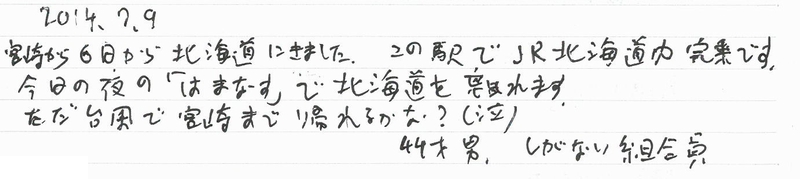 2014.7.9
宮崎から6日から北海道にきました。この駅でJR北海道内完乗です。
今日の夜の「はまなす」で北海道を離れます
ただ台風で宮崎まで帰れるかな?(泣)
44才男、しがない組合員